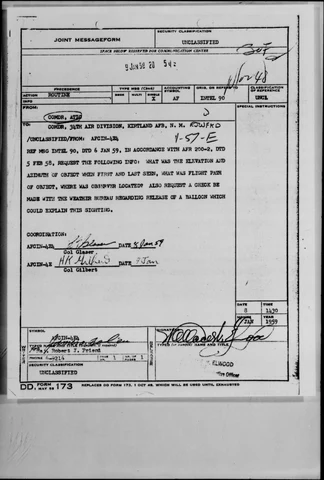 JOINT MESSAGEFORM
SECURITY CLASSIFICATION
UNCLASSIFIED
SPACE BELOW RESERVED FOR COMMUNICATION CENTER
9 JAN 59 20 54 Z
PRECEDENCE
TYPE MSG (Check)
ACCOUNTING SYMBOL
ORIG. OR REFERS TO
CLASSIFICATION OF REFERENCE
ACTION
ROUTINE
BOOK
MULTI
SINGLE
X
AF
INTEL 90
UNCL
INFO
FROM:
COMDR, ATIC
SPECIAL INSTRUCTIONS
TO:
COMDR, 34TH AIR DIVISION, KIRTLAND AFB, N. M.
/UNCLASSIFIED/FROM: AFCIN-4E4
Y-57-E
REF MSG INTEL 90, DTG 6 JAN 59. IN ACCORDANCE WITH AFR 200-2, DTD
5 FEB 58, REQUEST THE FOLLOWING INFO: WHAT WAS THE ELEVATION AND
AZIMUTH OF OBJECT WHEN FIRST AND LAST SEEN, WHAT WAS FLIGHT PATH
OF OBJECT, WHERE WAS OBSERVER LOCATED? ALSO REQUEST A CHECK BE
MADE WITH THE WEATHER BUREAU REGARDING RELEASE OF A BALLOON WHICH
COULD EXPLAIN THIS SIGHTING.
COORDINATION:
AFCIN-4E4 DATE 8 Jan 59
Col Glaser
AFCIN-4E DATE 9 Jan
Col Gilbert
DATE
TIME
8
1430
MONTH
YEAR
JAN
1959
SYMBOL
AFCIN-4E4
TYPED NAME AND TITLE
Maj. Robert J. Friend
PHONE
PAGE NR.
1
NR. OF PAGES
1
SIGNATURE
TYPED NAME AND TITLE
SECURITY CLASSIFICATION
UNCLASSIFIED
DD FORM 1 MAY 55 173
REPLACES DD FORM 173, 1 OCT 49, WHICH WILL BE USED UNTIL EXHAUSTED